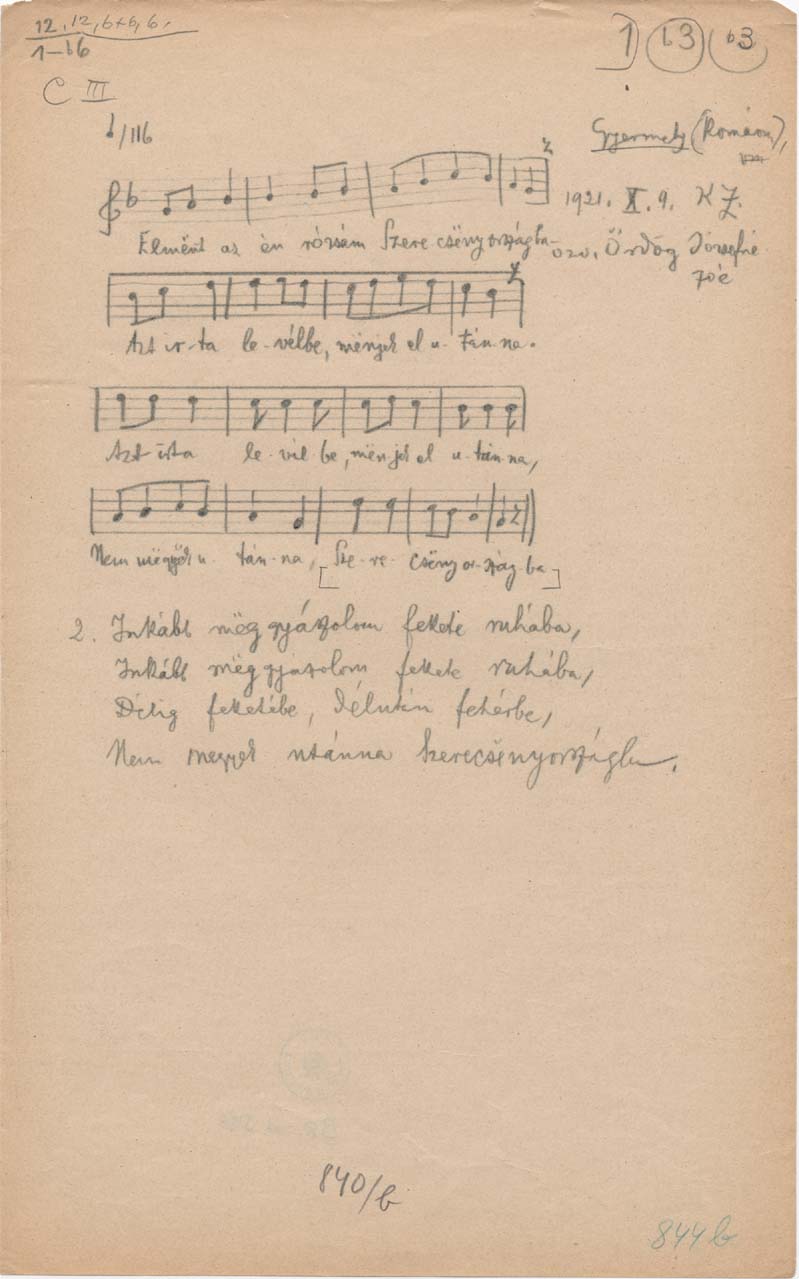 12, 12, 6+6, 6,
1–b6
C III
1 b3 b3
/116
Gyermely (Komárom),
1921. X. 9. K Z.
özv. Ördög Józsefné
70é
Elmënt az én rózsám Szerecsënyországba
Azt ir-ta le-vélbe, mënjek el u-tán-na.
Azt irta le-vél-be, mën-jek el u-tán-na,
Nem mëgyëk u-tán-na, [Sze-re-csëny-or-szág-ba]
2. Inkább mëggyászolom fekete ruhába,
Inkább mëggyászolom fekete ruhába,
Délig feketébe, délután fehérbe,
Nem megyek utánna Szerecsënyországba.
840/b
844 b